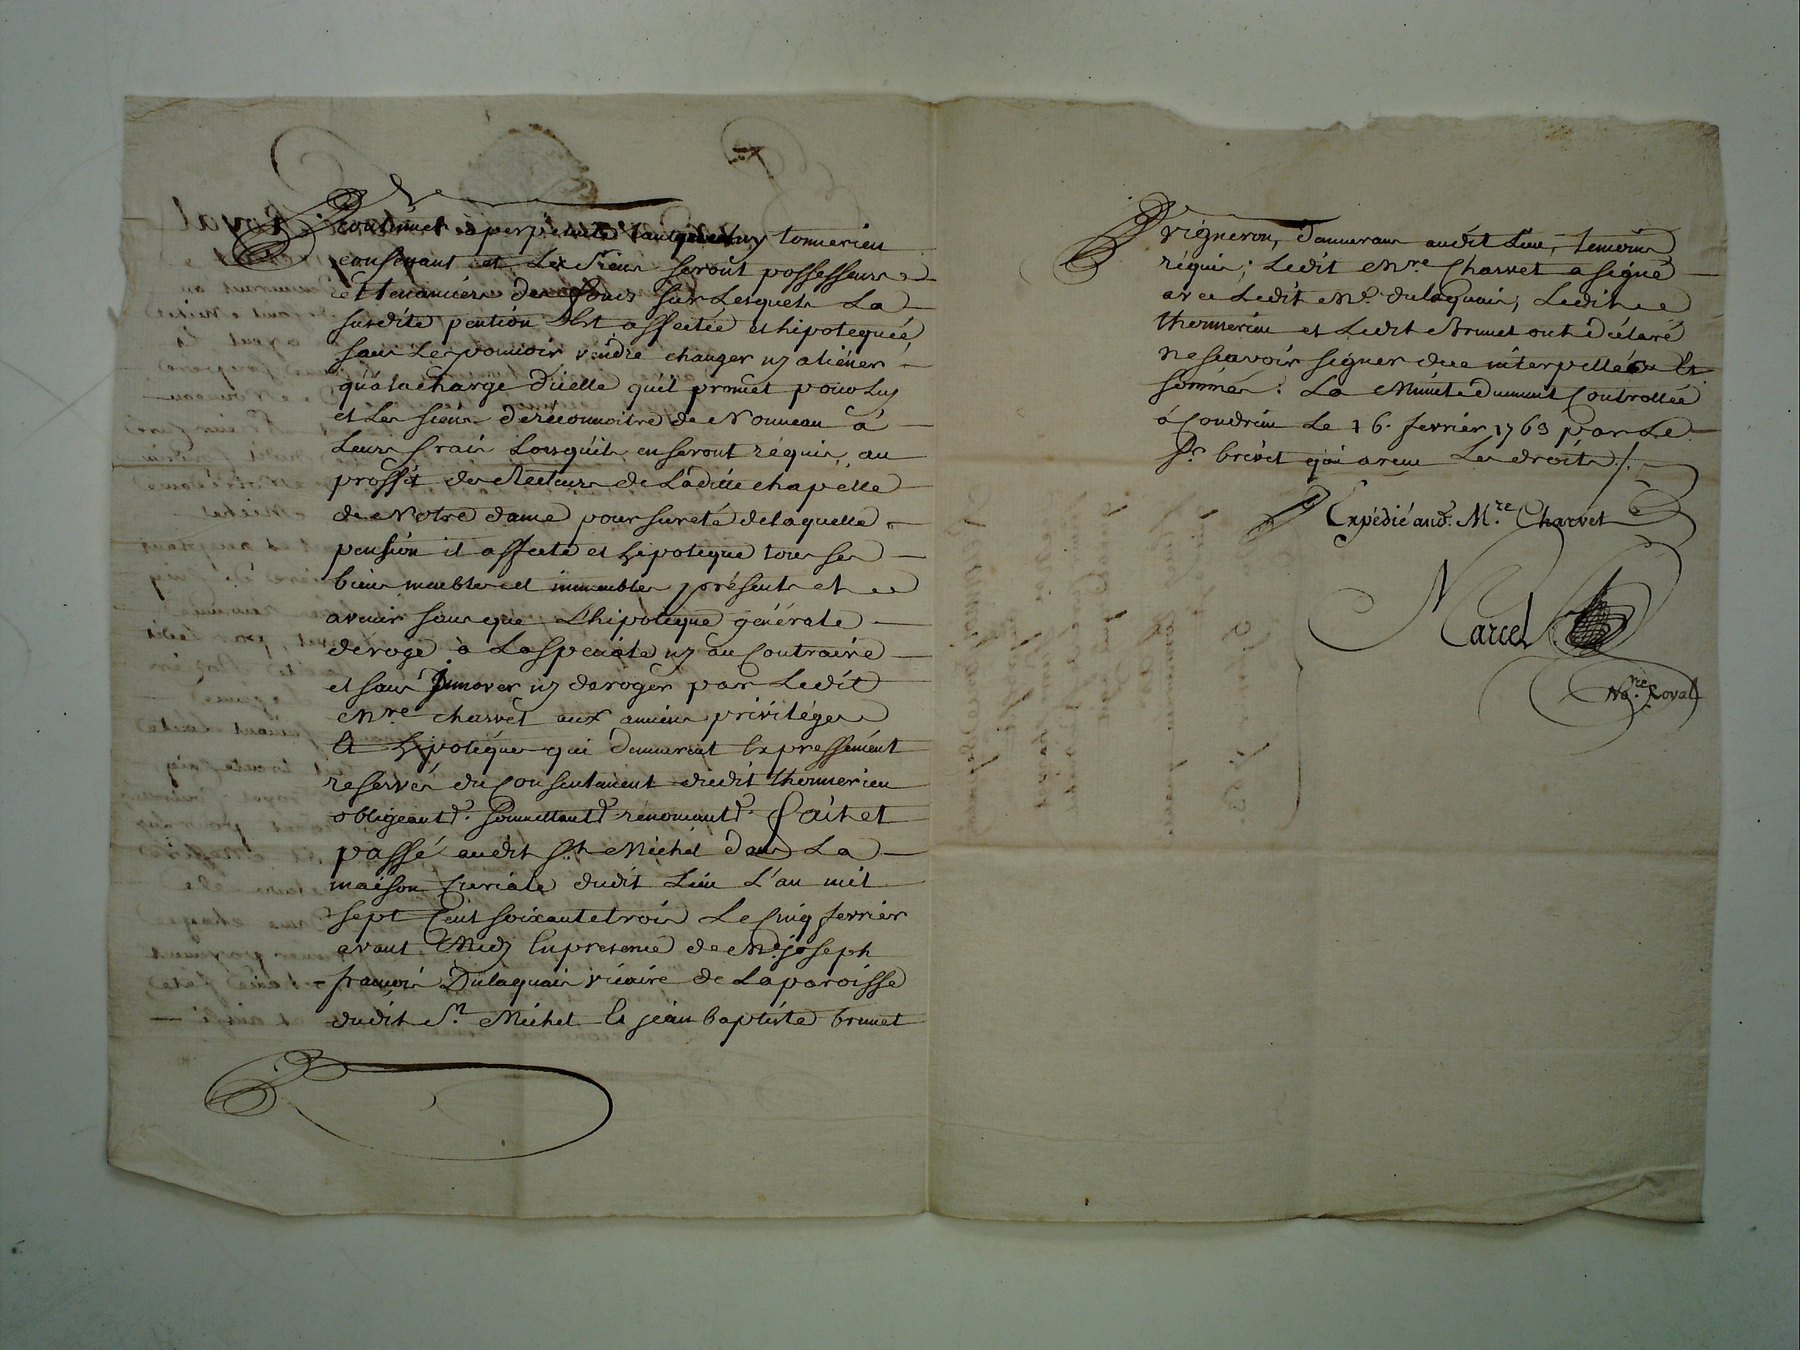 continuer a perpetuité tantqueluy tomerieu
consinant et Les Siens Seront possesseurs
et tenanciers des fonds sur Lesquels La
susdite pention Est affectée et hipotequée,
sans Le pouvoir vendre changer ny aliéner
qu'a la charge d'icelle qu'il promet pour Luy
et Les siens de reconnoitre de Nouveau à
Leurs frais Lorsqu'ils en seront réquis, au
proffit des Recteurs de Laditte chapelle
de Notre dame pour sureté de laquelle
pension il affecte et hipoteque tous ses
biens meubles et immeubles présents et
avenir sans que L'hipoteque générale
deroge a La speciale ny au Contraire
et sans Innover ny deroger par Ledit
Mre charvet aux anciens priviléges
Et hypoteques qui demeurent Expressement
reservés du Consentement dudit thomerieu
obligeant. Soumettant. renonceant. fait et
passé audit St. Michel dans La
maison Curiale dudit Lieu L'an mil
sept Cent soixante trois Le Cinq fevrier
avant Midy En presence de Me. joseph
francois Dulaquais vicaire de La paroisse
dudit St. Michel Et jean baptiste brunet
vigneron, demeurant audit Lieu, temoins
réquis; Ledit Mre. Charvet a signé
avec Ledit Me. dulaquais, Ledit
thomerieu et Ledit Brunet ont déclaré
ne sçavoir signer de ce interpellés Et
sommés. La Minute dument Controllée
à Condrieu Le 16. fevrier 1763 par Le
Sr. brévet qui a reçu Les droits /.
Expédié aud. Mre. Charvet
Marcel
Nore. Royal